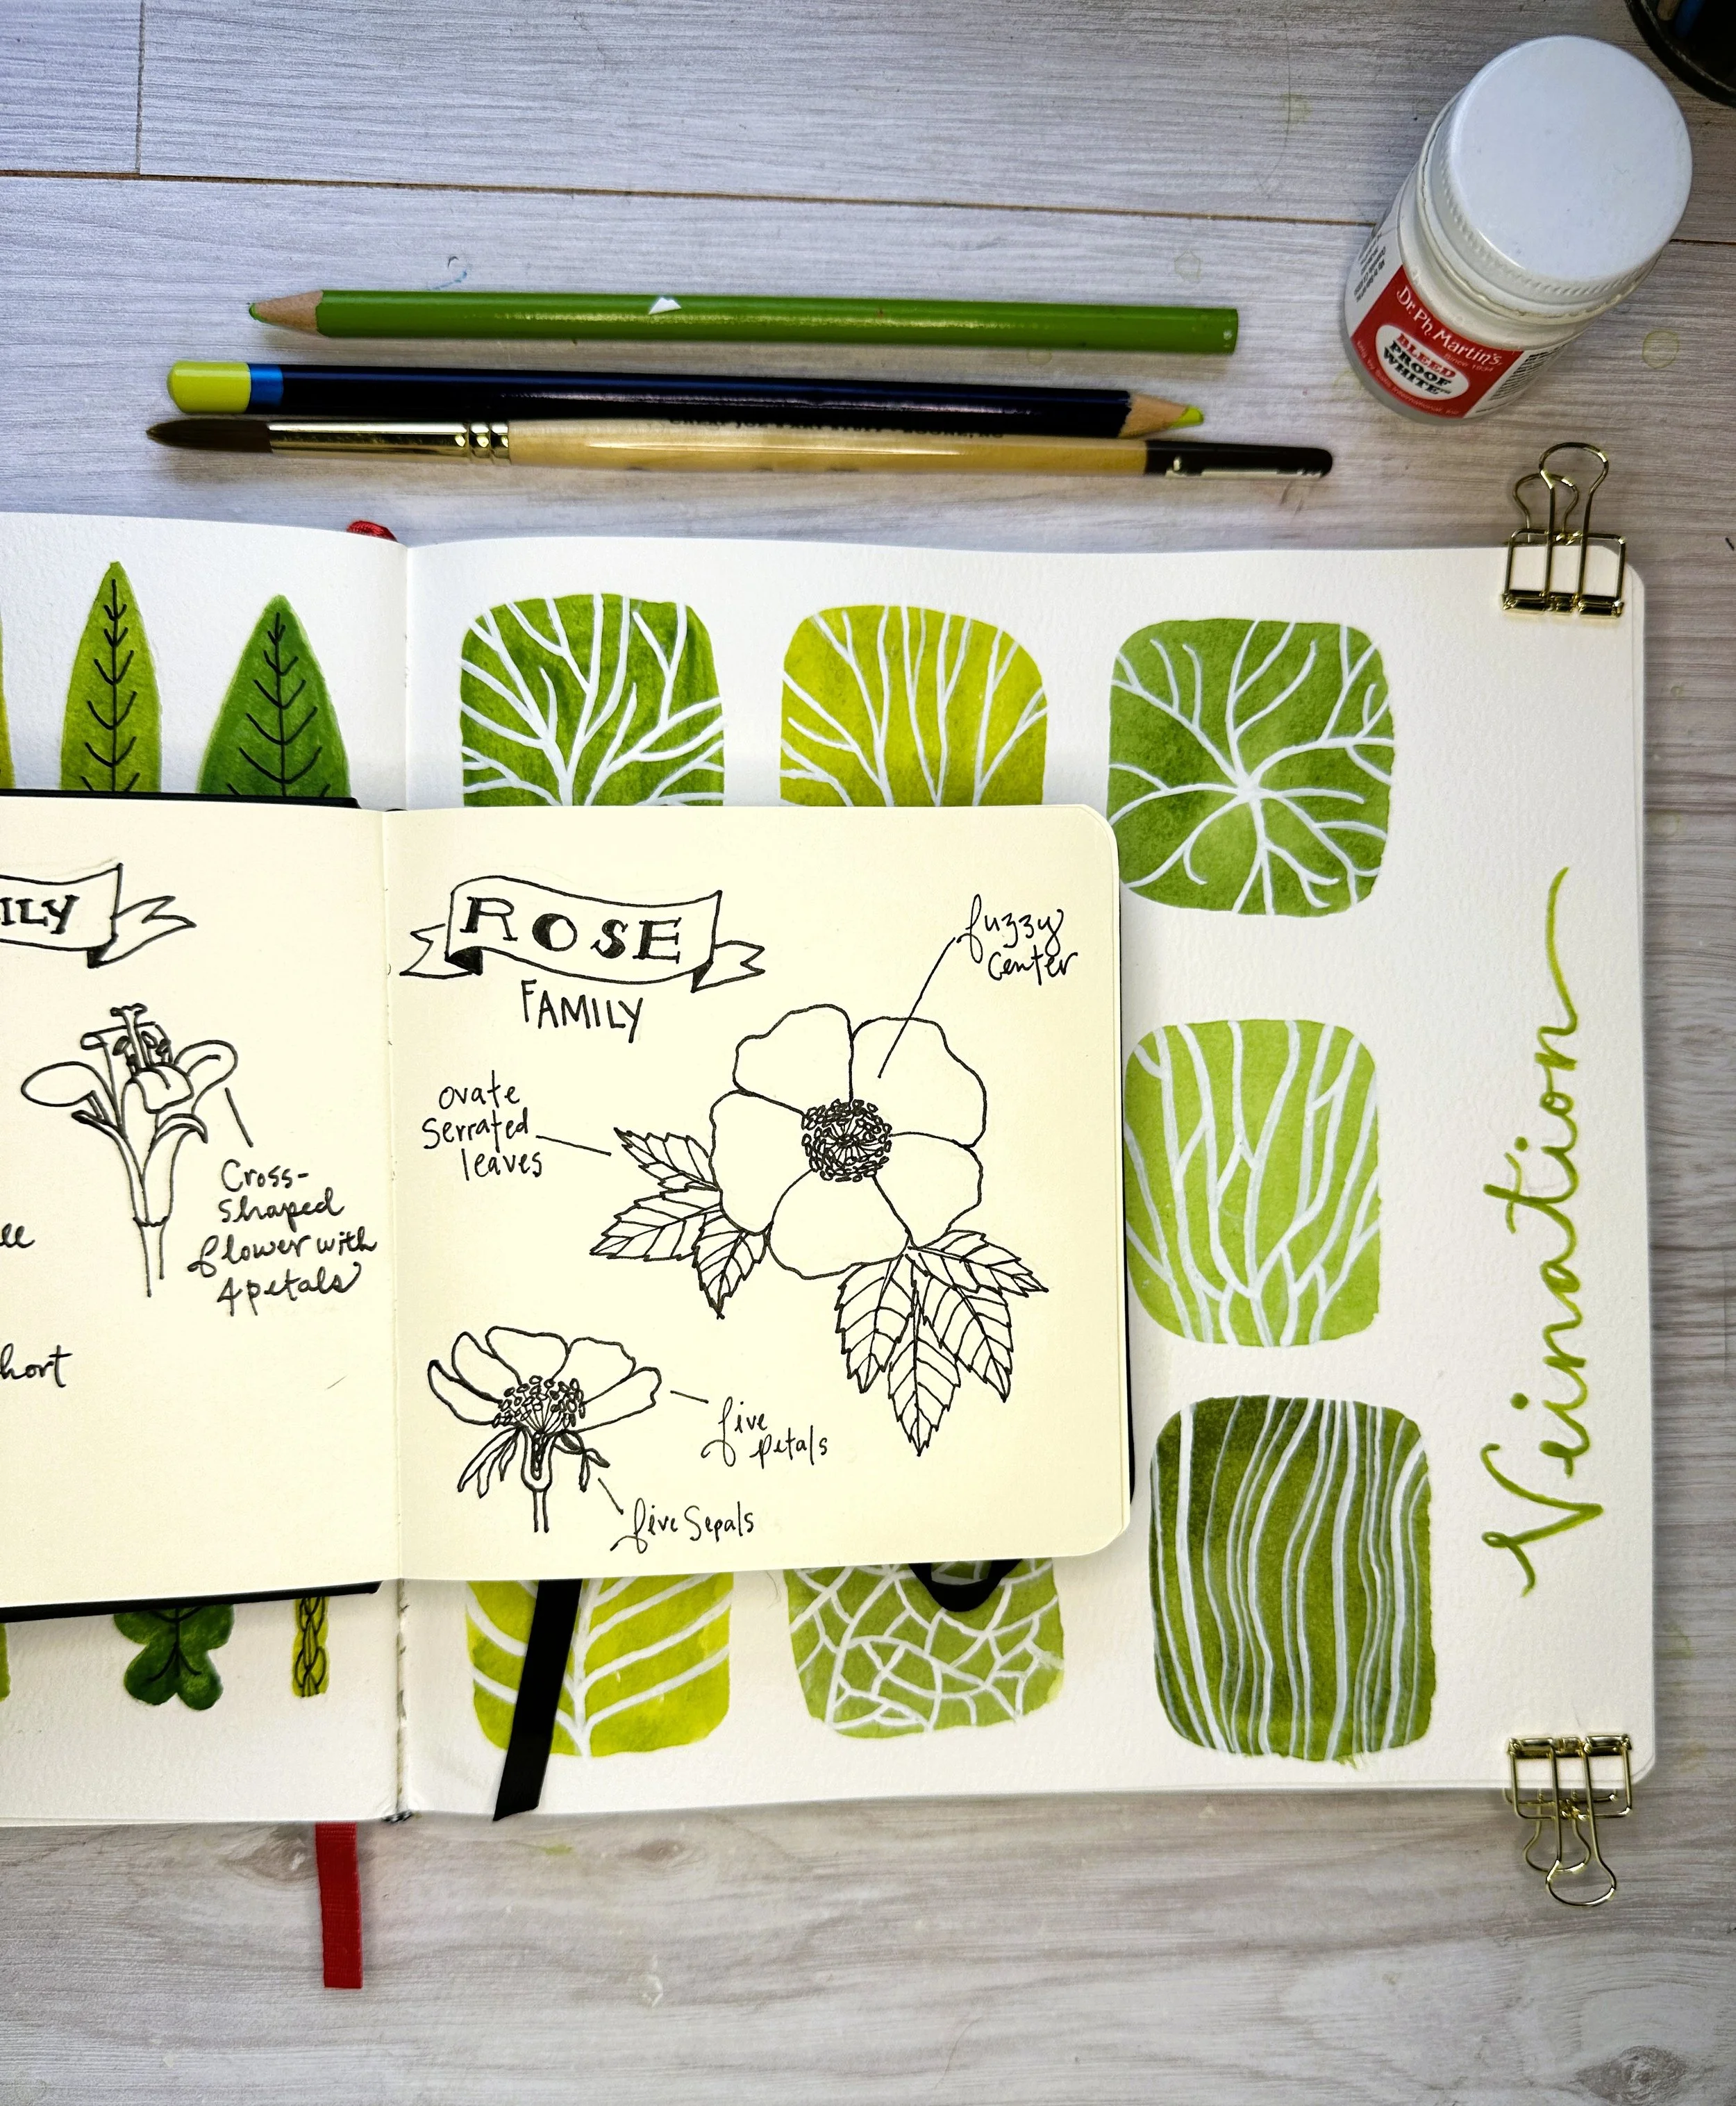 Dr. Ph. Martin's
Since 1934
BLEED
PROOF
WHITE
ILY
Cross-
shaped
flower with
4 petals
hort
ROSE
FAMILY
fuzzy
center
ovate
serrated
leaves
five
petals
five sepals
Veination